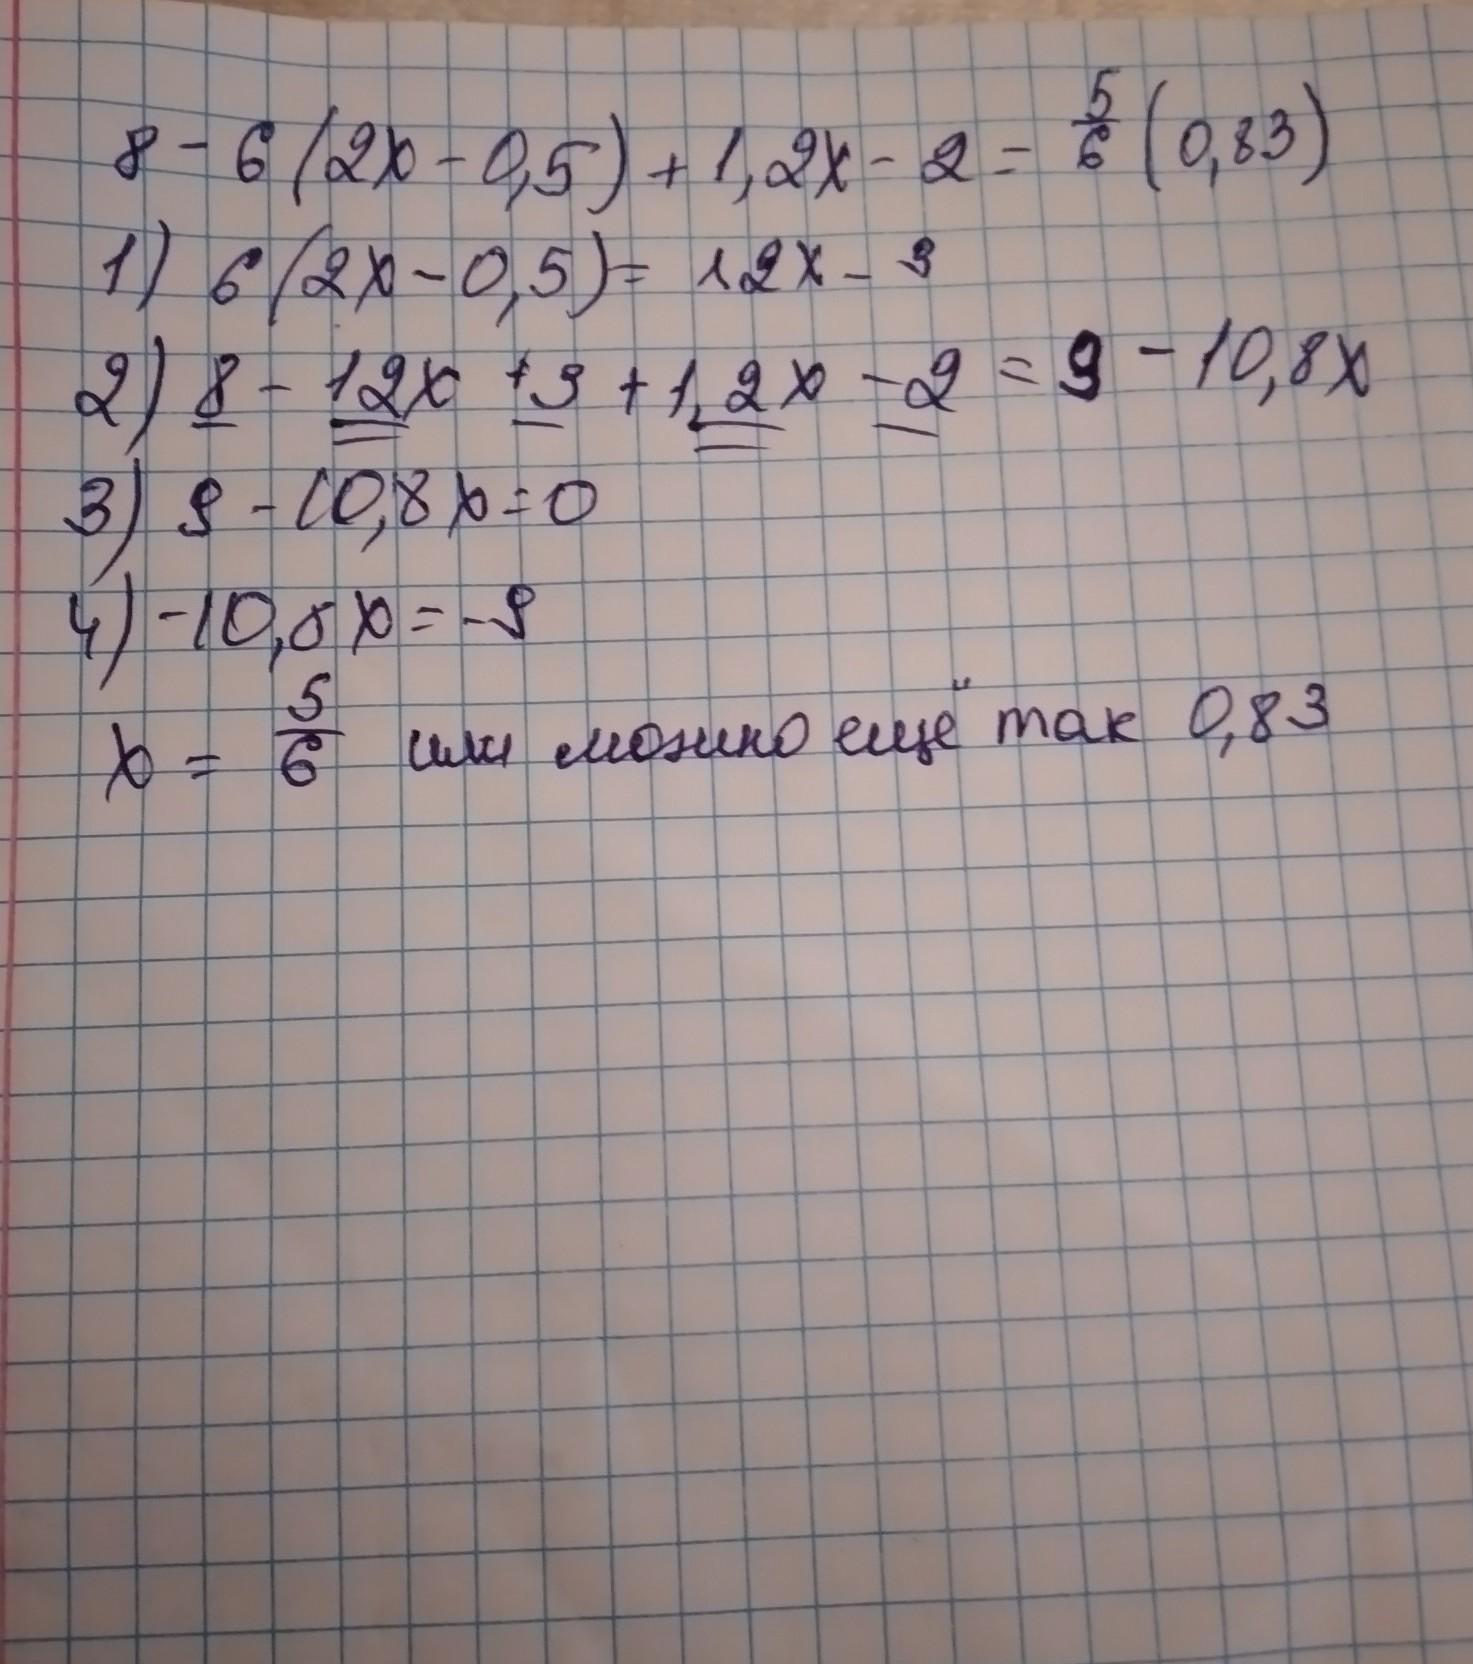 8 - 6(2x - 0,5) + 1,2x - 2 = 5/6 (0,83)
1) 6(2x - 0,5) = 12x - 3
2) 8 - 12x + 3 + 1,2x - 2 = 9 - 10,8x
3) 9 - 10,8x = 0
4) -10,8x = -9
x = 5/6 или можно ещё так 0,83